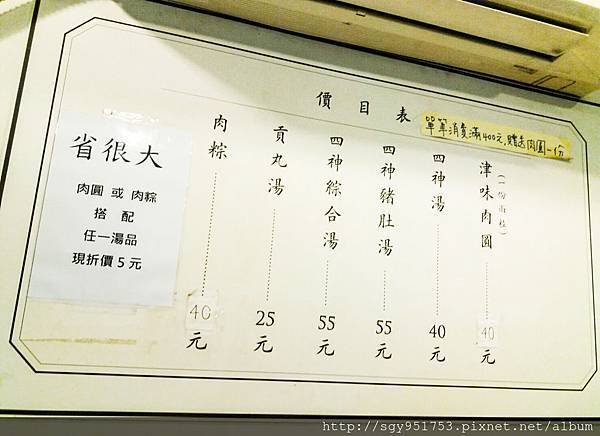 價目表
單筆消費滿400元,贈送肉圓一份
津味肉圓(一份兩粒)40元
四神湯40元
四神豬肚湯55元
四神綜合湯55元
貢丸湯25元
肉粽40元
省很大
肉圓 或 肉粽
搭 配
任一湯品
現折價5元
http://sgy951753.pixnet.net/album